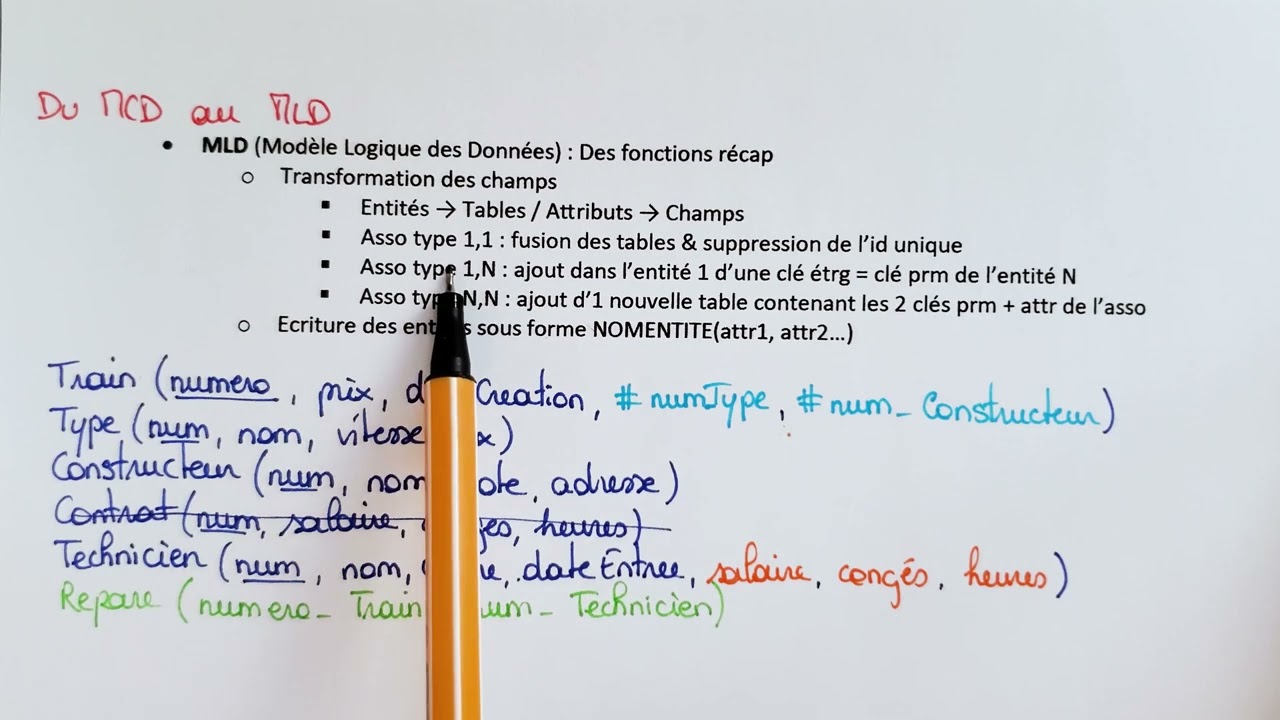 Du MCD au MLD
• MLD (Modèle Logique des Données) : Des fonctions récap
o Transformation des champs
▪ Entités → Tables / Attributs → Champs
▪ Asso type 1,1 : fusion des tables & suppression de l’id unique
▪ Asso type 1,N : ajout dans l’entité 1 d’une clé étrg = clé prm de l’entité N
▪ Asso N,N : ajout d’1 nouvelle table contenant les 2 clés prm + attr de l’asso
o Ecriture des sous forme NOMENTITE(attr1, attr2…)
Train (numero, prix, Creation, #numType, #num_Constructeur)
Type (num, nom, vitesse )
Constructeur (num, nom adresse)
Contrat (num, salaire, heures)
Technicien (num, nom, dateEntree, salaire, congés, heures)
Repare (numero_Train Technicien)